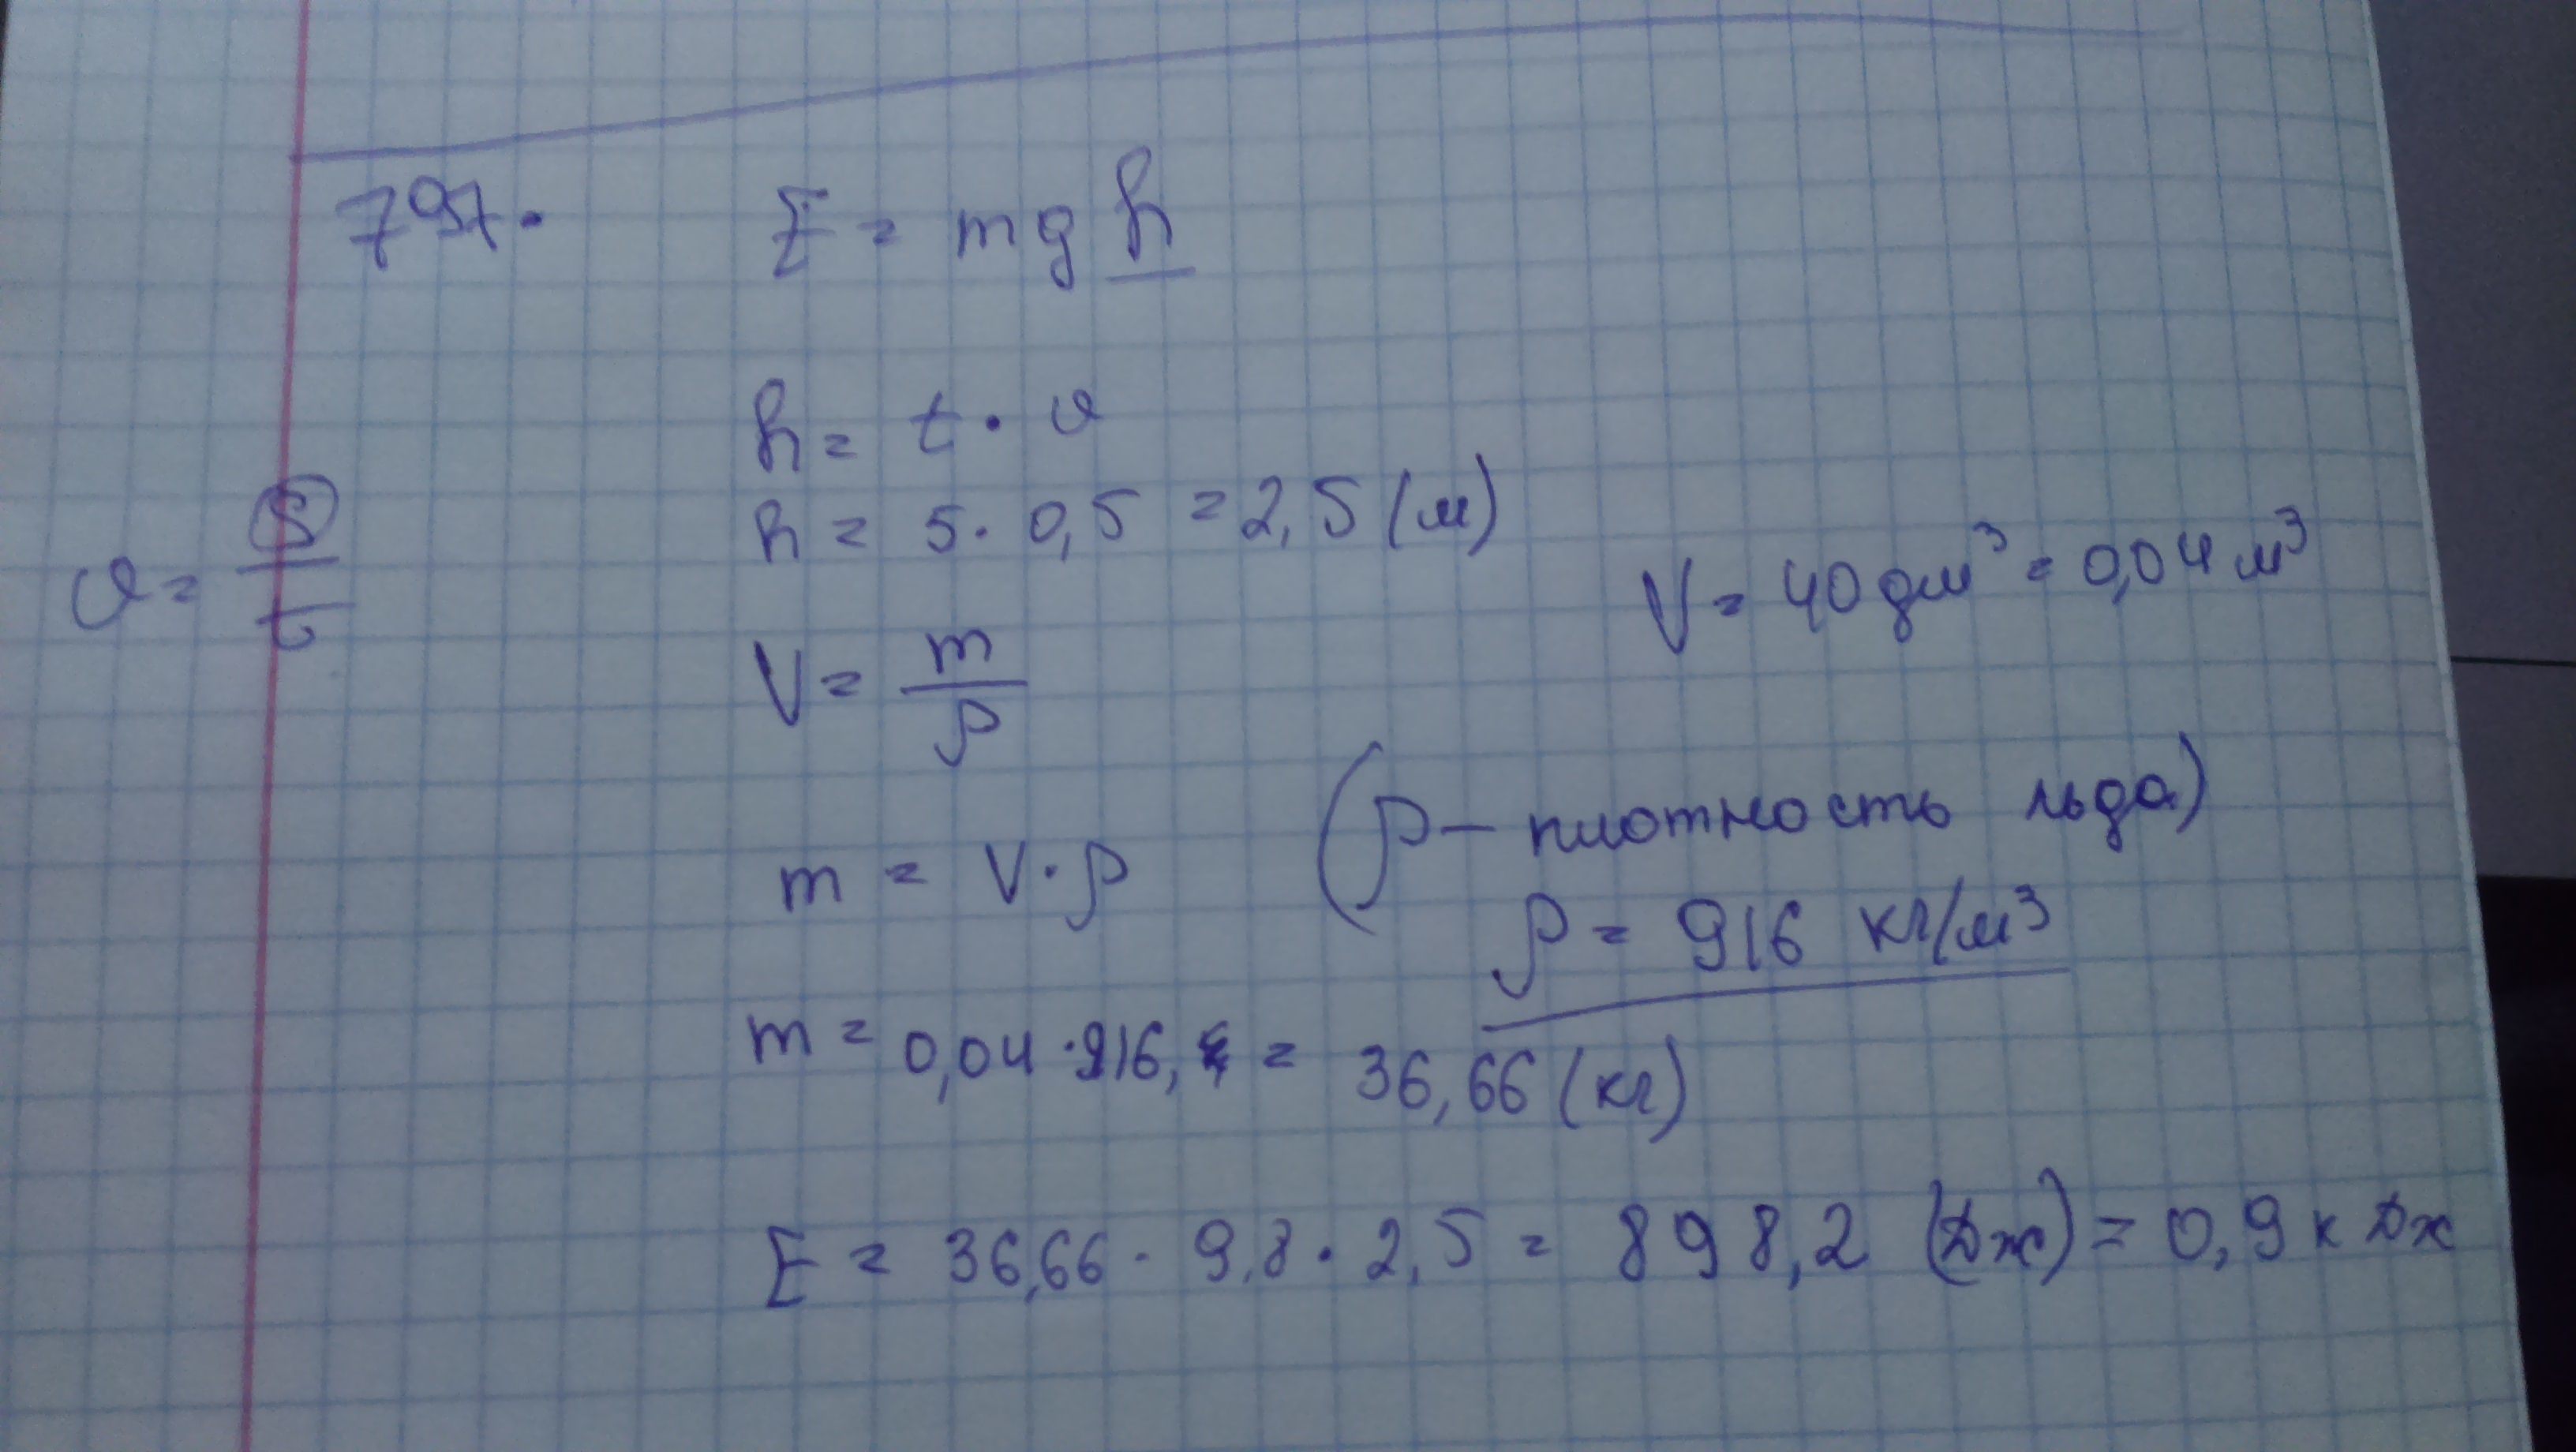 797.
E = mgh
h = t · υ
h = 5 · 0,5 = 2,5 (м)
υ = S/t
V = 40 дм³ = 0,04 м³
V = m/ρ
m = V · ρ
(ρ – плотность льда)
ρ = 916 кг/м³
m = 0,04 · 916,4 = 36,66 (кг)
E = 36,66 · 9,8 · 2,5 = 898,2 (Дж) = 0,9 к Дж